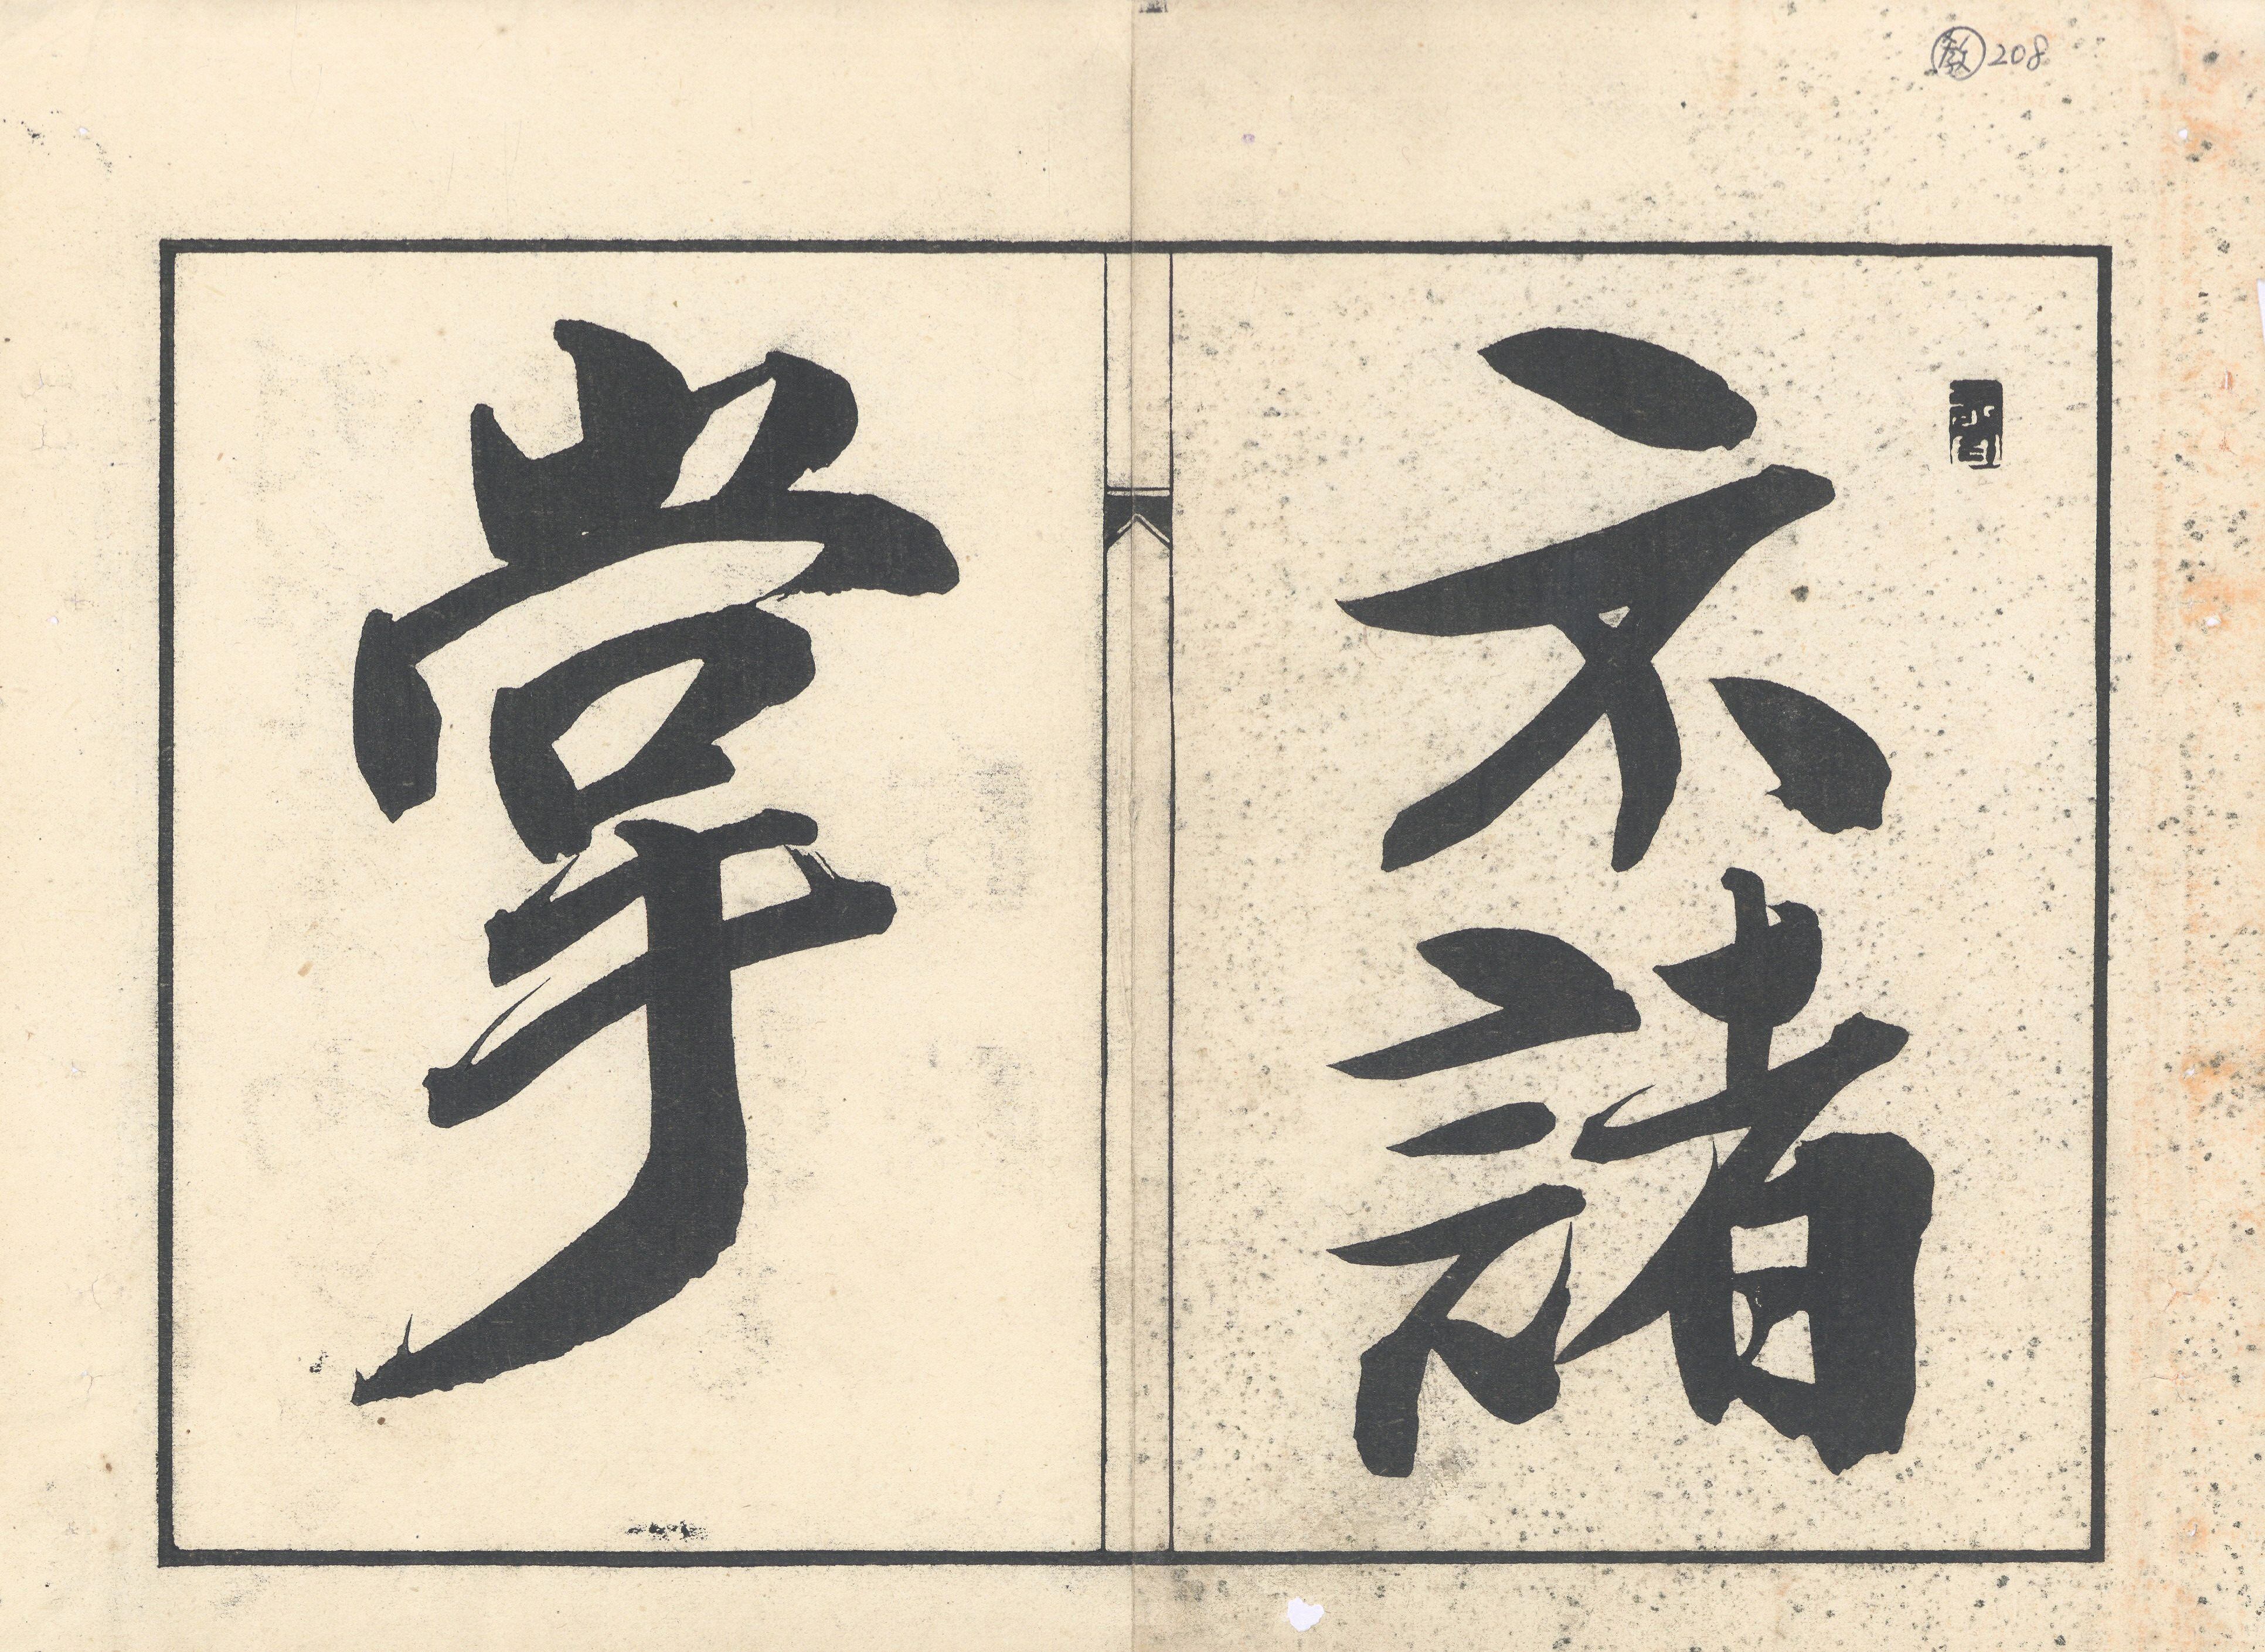 教 208
示諸
掌